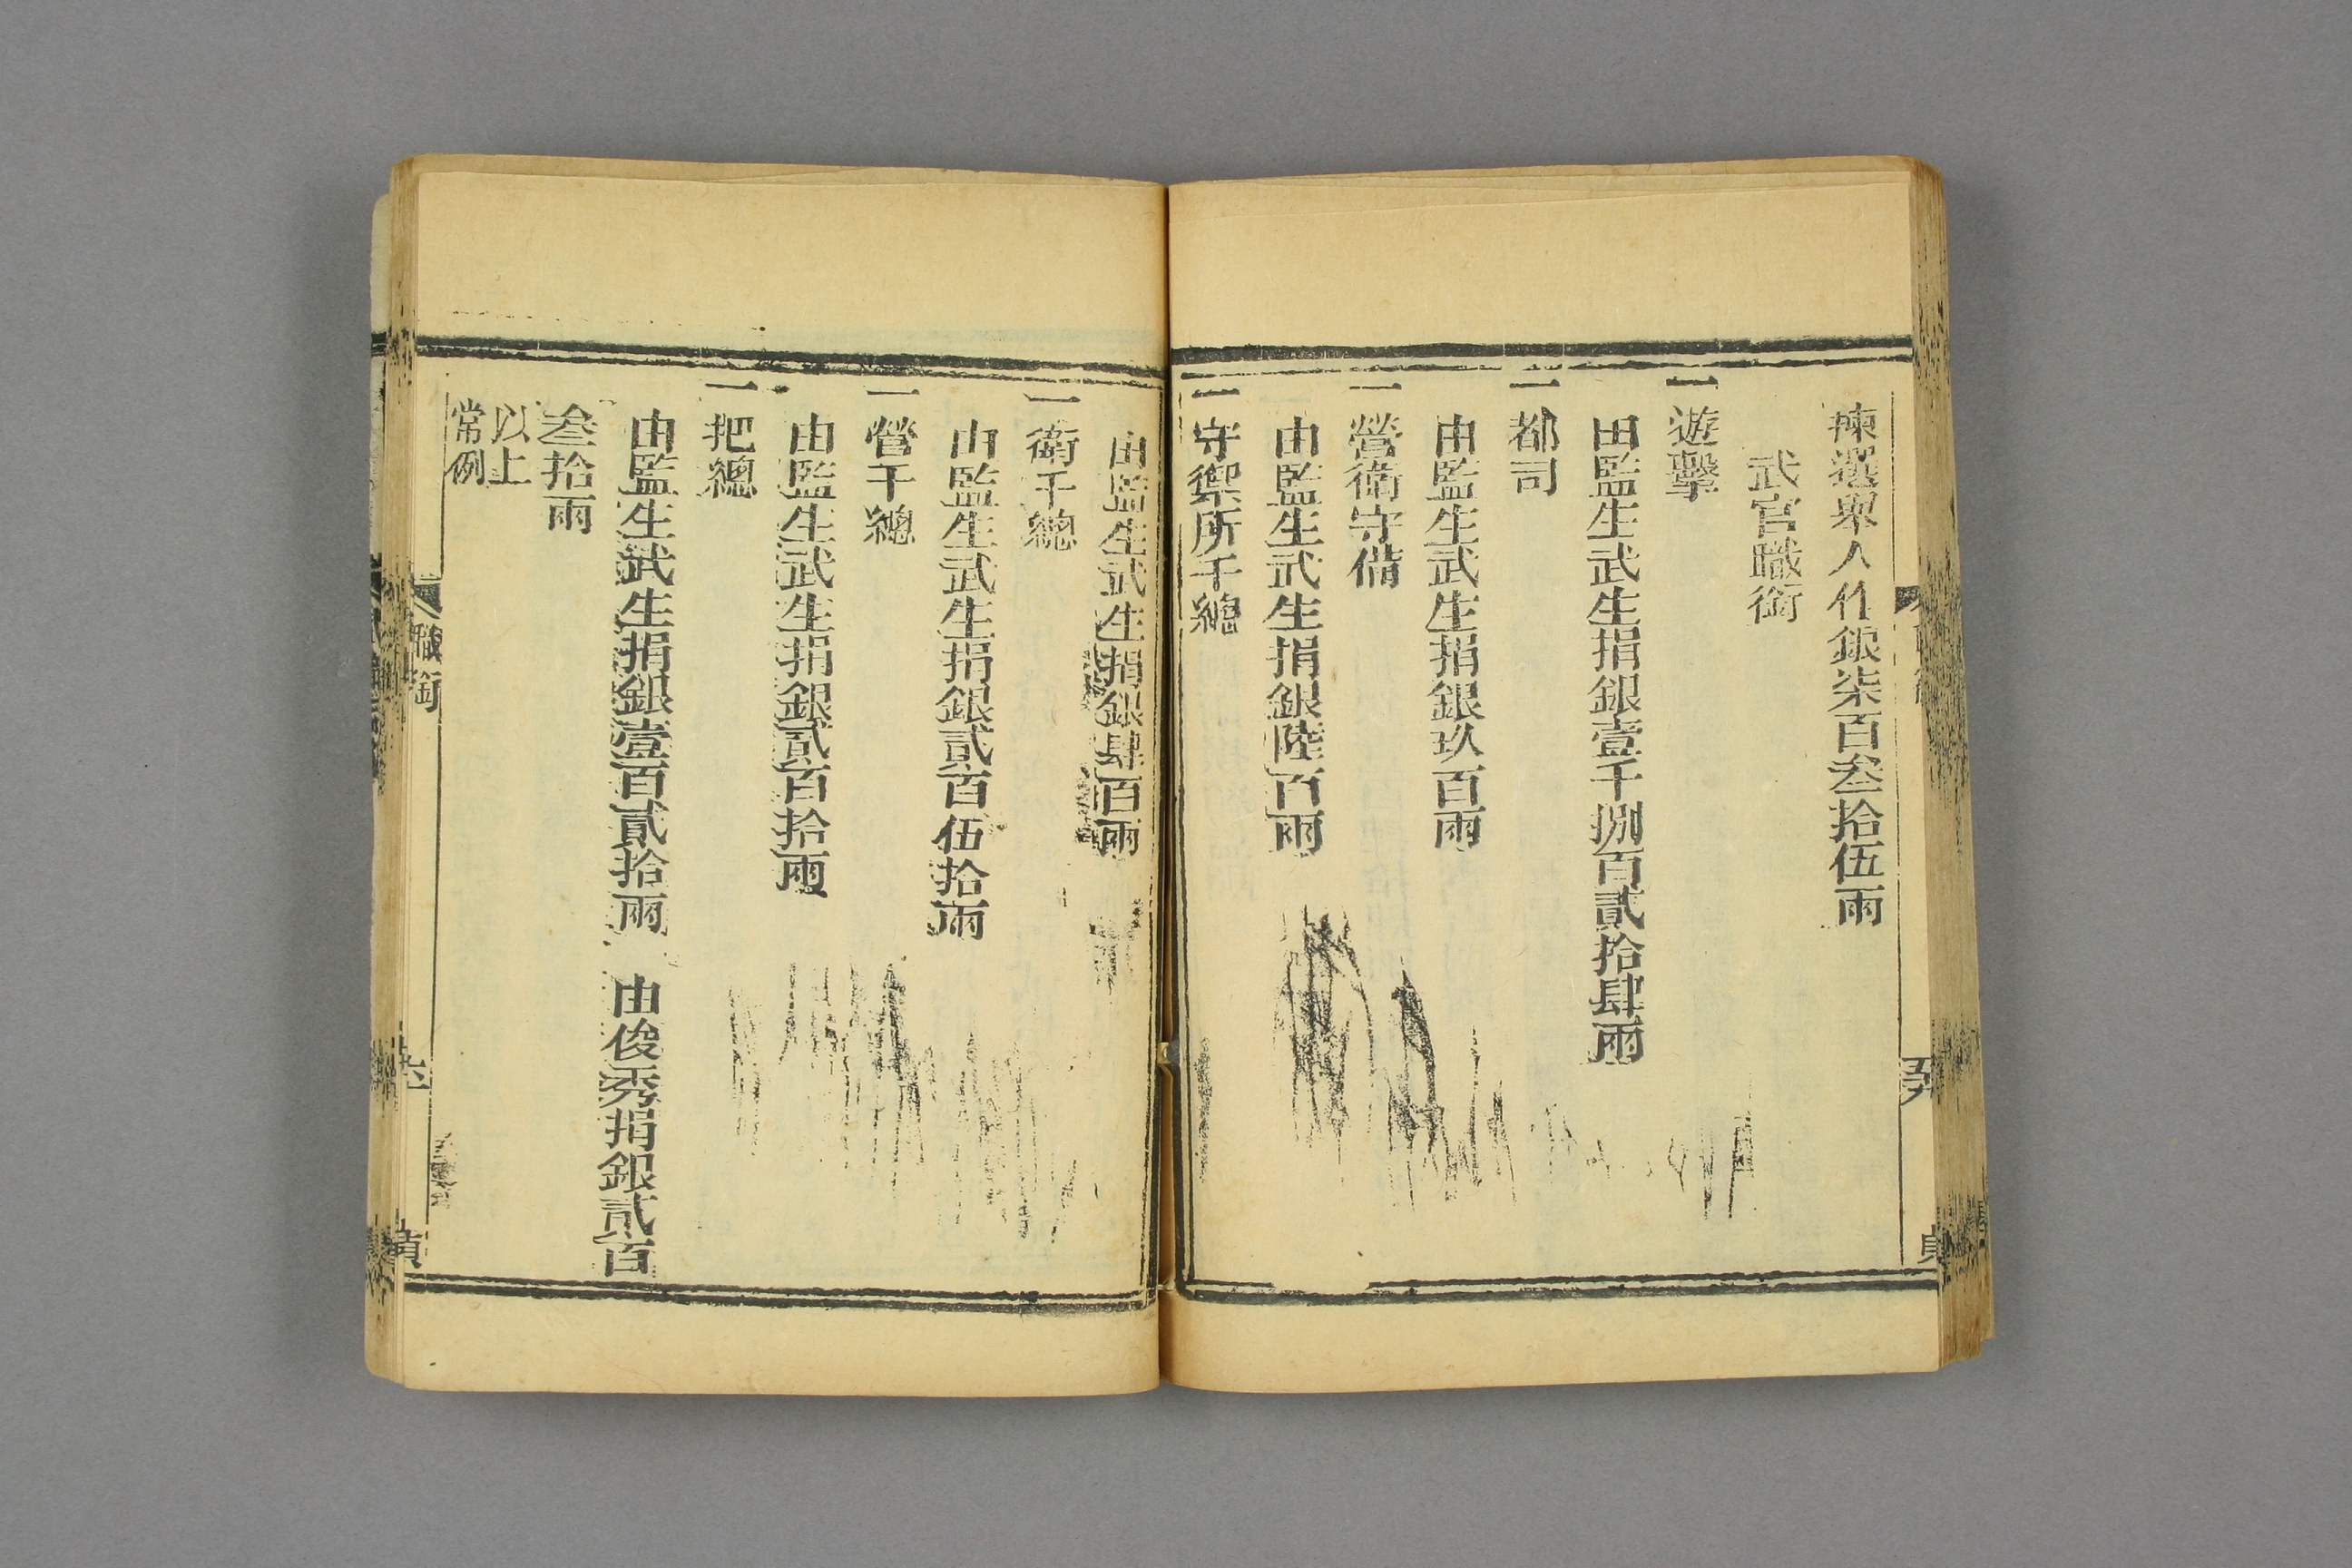 揀選舉人作銀柒百叁拾伍兩
武官職銜
一遊擊
由監生武生捐銀壹千捌百貳拾肆兩
一都司
由監生武生捐銀玖百兩
一營衛守備
由監生武生捐銀陸百兩
一守禦所千總
由監生武生捐銀肆百兩
一衛千總
由監生武生捐銀貳百伍拾兩
一營千總
由監生武生捐銀貳百拾兩
一把總
由監生武生捐銀壹百貳拾兩　由俊秀捐銀貳百
叁拾兩
以上
常例
職銜